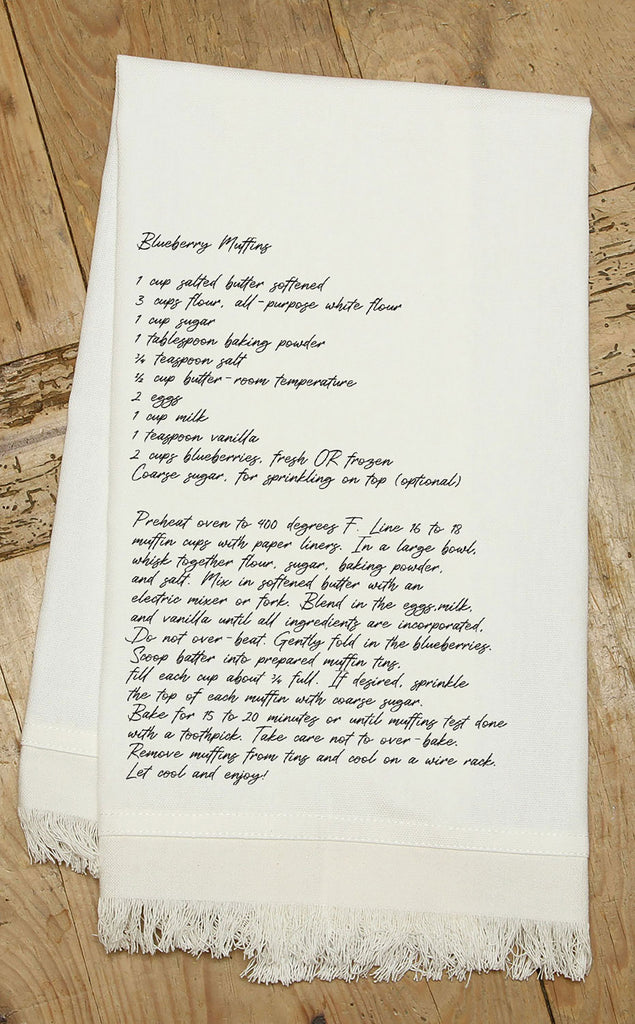 Blueberry Muffins
1 cup salted butter softened
3 cups flour, all-purpose white flour
1 cup sugar
1 tablespoon baking powder
¾ teaspoon salt
½ cup butter-room temperature
2 eggs
1 cup milk
1 teaspoon vanilla
2 cups blueberries, fresh OR frozen
Coarse sugar, for sprinkling on top (optional)
Preheat oven to 400 degrees F. Line 16 to 18
muffin cups with paper liners. In a large bowl,
whisk together flour, sugar, baking powder,
and salt. Mix in softened butter with an
electric mixer or fork. Blend in the eggs,milk,
and vanilla until all ingredients are incorporated,
Do not over-beat. Gently fold in the blueberries.
Scoop batter into prepared muffin tins,
fill each cup about ¾ full. If desired, sprinkle
the top of each muffin with coarse sugar.
Bake for 15 to 20 minutes or until muffins test done
with a toothpick. Take care not to over-bake.
Remove muffins from tins and cool on a wire rack.
Let cool and enjoy!